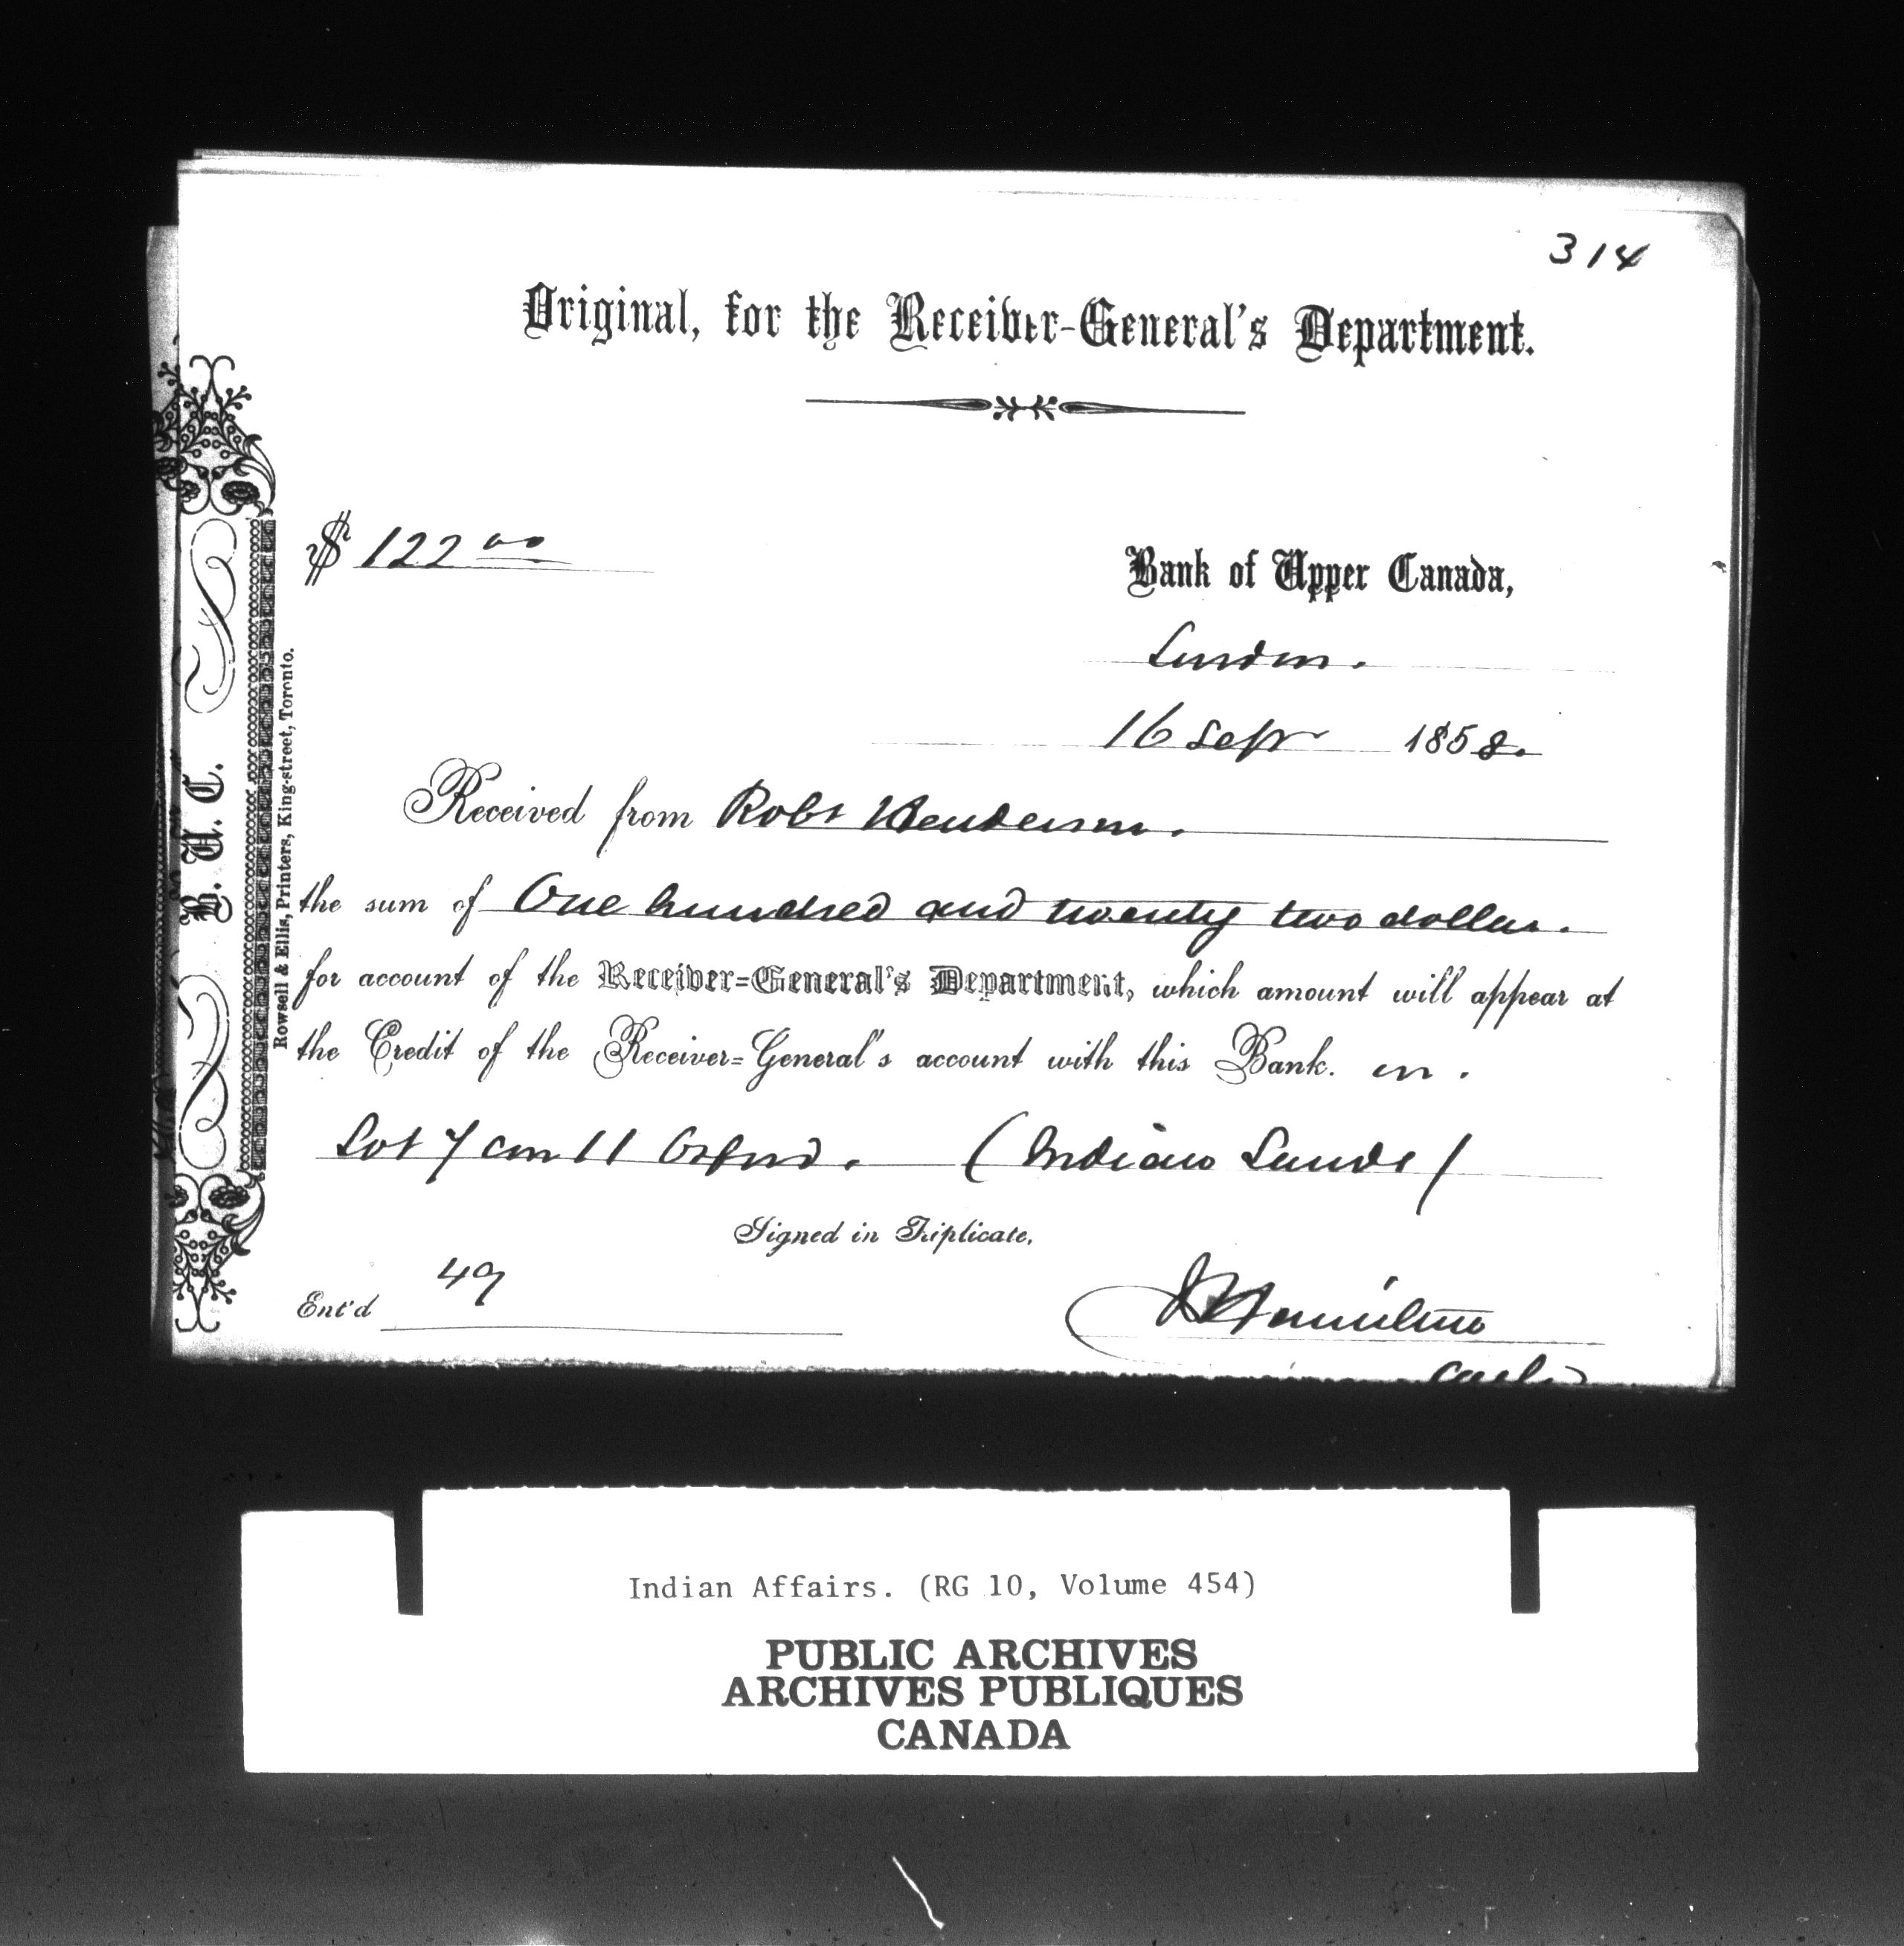 314
Original, for the Receiver-General's Department.
$ 122 00
Bank of Upper Canada,
London.
16 Sept 1858.
Received from Robt Henderson.
the sum of One hundred and twenty two dollars.
for account of the Receiver-General's Department, which amount will appear at
the Credit of the Receiver-General's account with this Bank. on.
Lot 7 con 11 Orford. (Indian Lands)
Signed in Triplicate,
Ent'd 49
J Hamilton
Cash
B. U. C.
Rowsell & Ellis, Printers, King-street, Toronto.
Indian Affairs. (RG 10, Volume 454)
PUBLIC ARCHIVES
ARCHIVES PUBLIQUES
CANADA